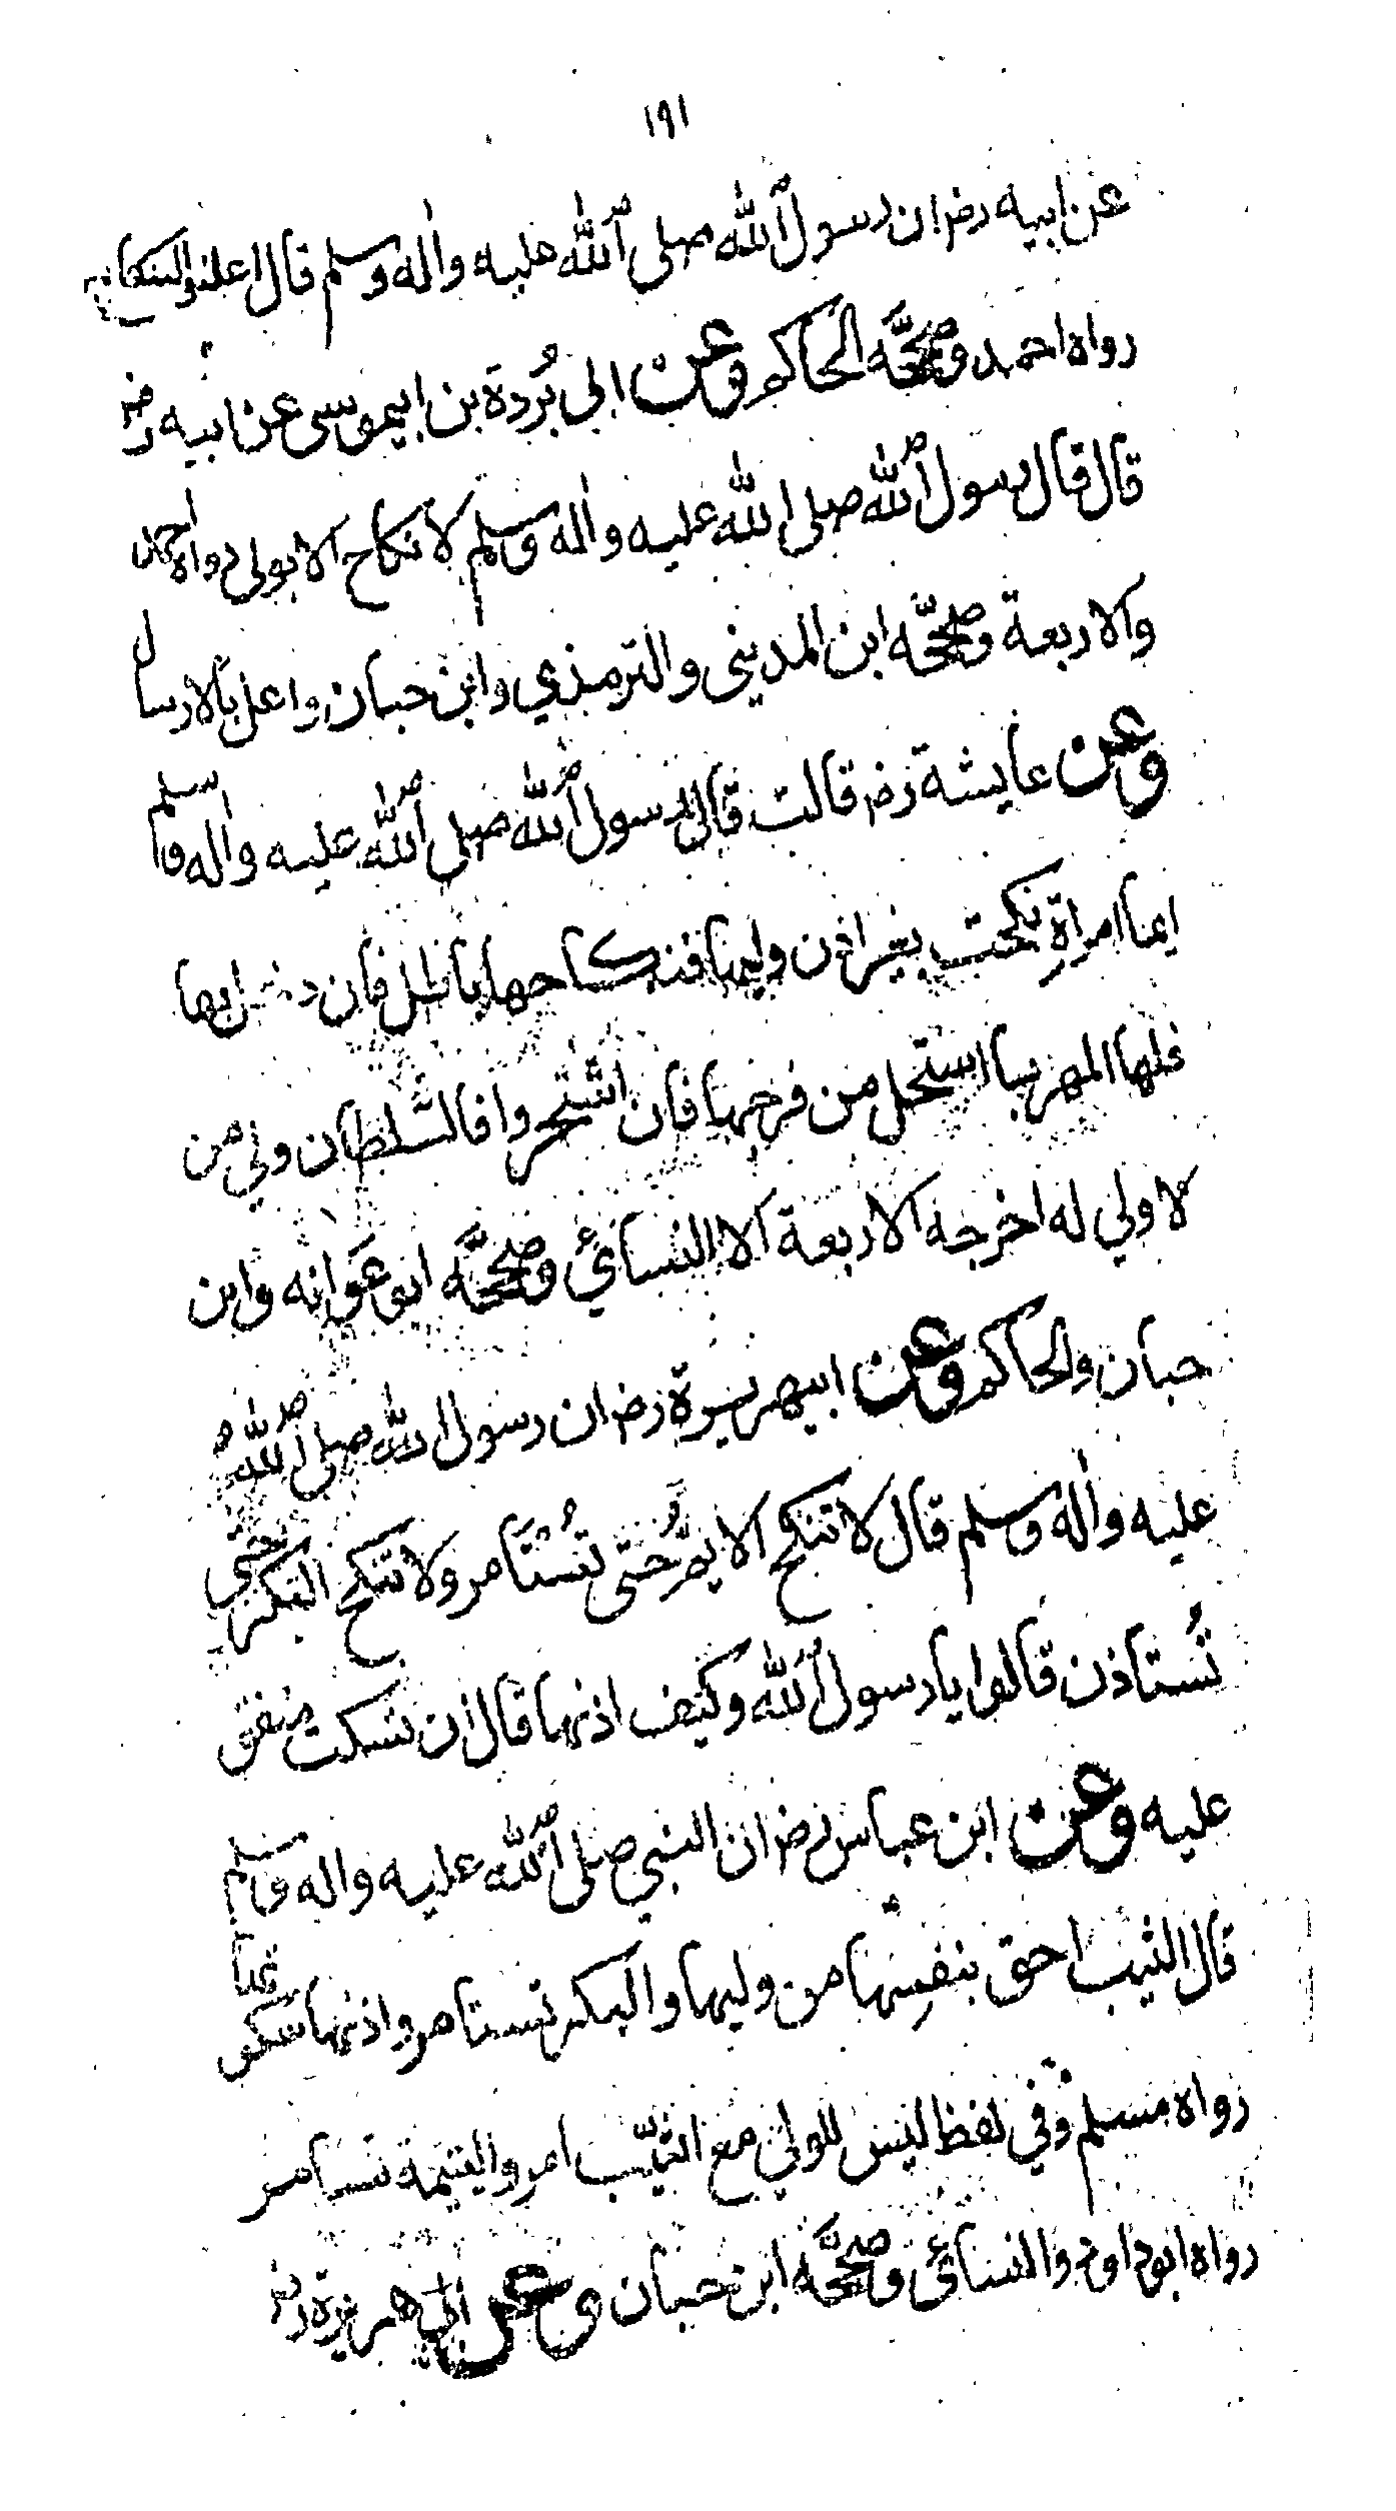 ١٩١
عن ابيه رض ان رسول الله صلى الله عليه واٰله وسلم قال اعلنوا النكاح
رواه احمد وصححّه الحاكم وعن ابى بُردة بن ابيموسى عن ابيه رض
قال قال رسول الله صلى الله عليه واٰله وسلم لا نكاح الا بولى رواه احمد
والاربعة وصححّه ابن المدينى والترمذي وابن حبان واعل بالارسال
وعن عايشة رض قالت قال رسول الله صلى الله عليه واٰله وسلم
ايما امراة نكحت بغير اذن وليها فنكاحها باطل فان دخل بها
فلها المهر بما استحل من فرجها فان اشتجروا فالسّلطان ولي من
لا ولي له اخرجه الاربعة الا النسائي وصححّه ابو عوانه وابن
حبان والحاكم وعن ابيهريرة رض ان رسول الله صلى الله
عليه واٰله وسلم قال لا تنكح الايّم حتى تُستأمر ولا تنكح البكر حتى
تُستاذن قالوا يا رسول الله وكيف اذنها قال ان تسكت متفق
عليه وعن ابن عباس رض ان النبي صلى الله عليه واله وسلم
قال الثيب احق بنفسِها من وليها والبكر تستامر واذنها سكوتها
رواه مسلم وفي لفظ ليس للولي مع الثيّب امر واليتيمة تستامر
رواه ابوداود والنسائى وصححّه ابن حبان وعن ابي هريرة رض